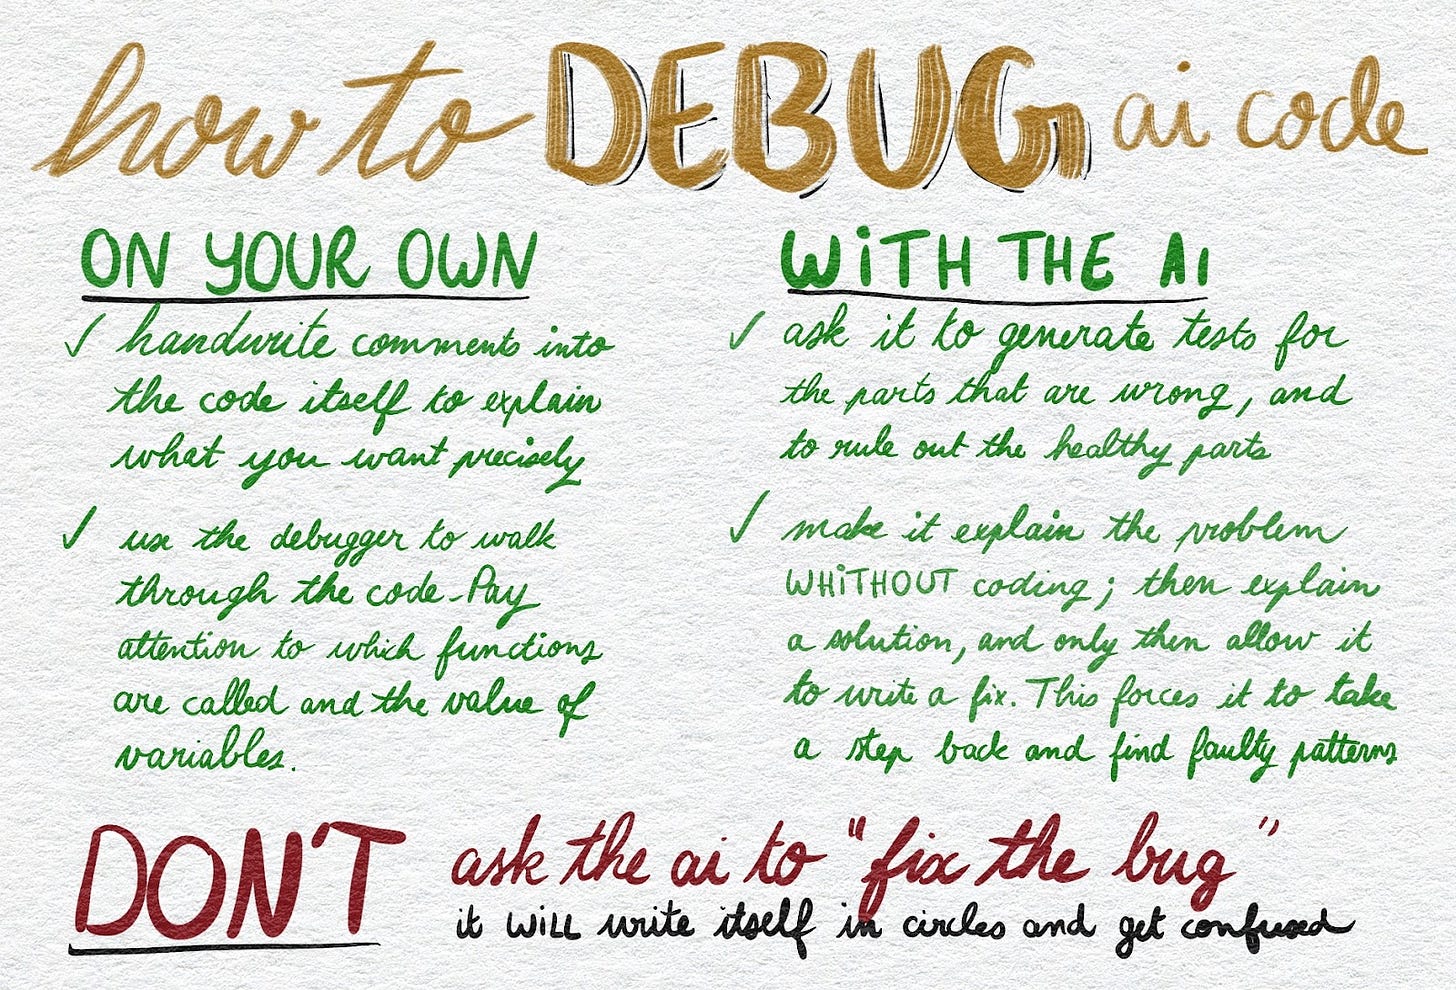 how to DEBUG ai code
ON YOUR OWN
✓ handwrite comments into
the code itself to explain
what you want precisely
✓ use the debugger to walk
through the code. Pay
attention to which functions
are called and the value of
variables.
WiTH THE AI
✓ ask it to generate tests for
the parts that are wrong, and
to rule out the healthy parts
✓ make it explain the problem
WHiTHOUT coding; then explain
a solution, and only then allow it
to write a fix. This forces it to take
a step back and find faulty patterns
DON'T ask the ai to "fix the bug"
it WiLL write itself in circles and get confused